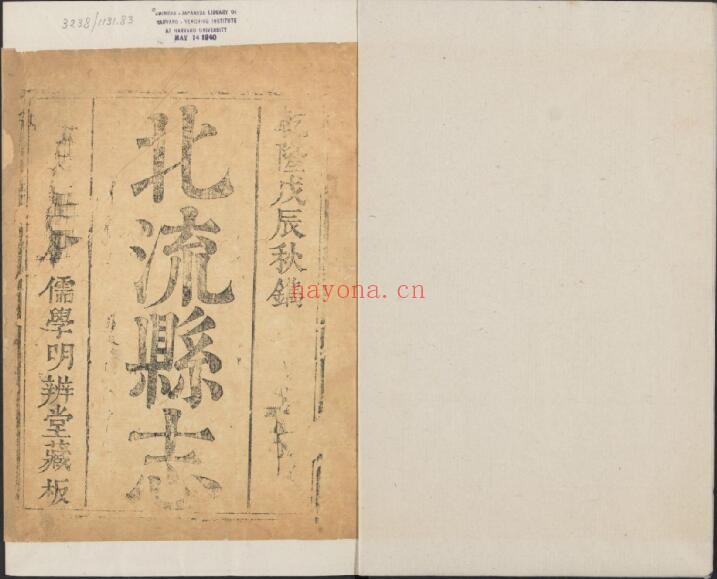 3238/1131.83
CHINESE-JAPANESE LIBRARY OF
HARVARD-YENCHING INSTITUTE
AT HARVARD UNIVERSITY
MAY 14 1940
乾隆戊辰秋鐫
北流縣志
儒學明辨堂藏板
nayona.cn